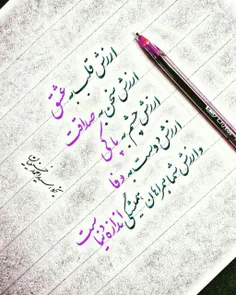 ارزش قلب به عشق
ارزش سخن به صداقت
ارزش چشم به پاکی
ارزش دوست به وفا
وارزش شما همراهان همیشگی اندازه دنیاست